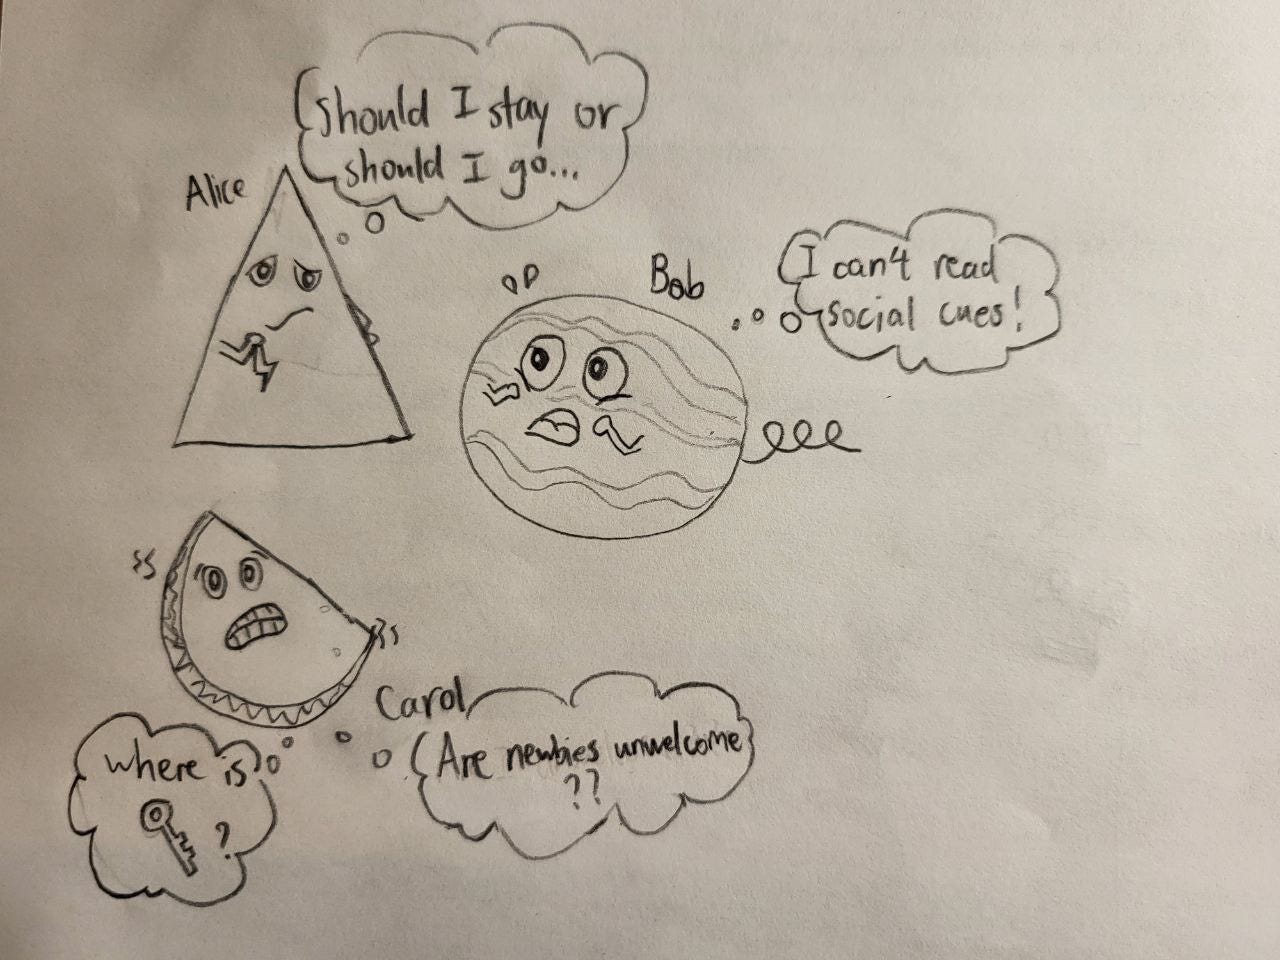 Should I stay or
should I go...
Alice
Bob
I can't read
social cues!
Carol
Are newbies unwelcome
??
where is
?